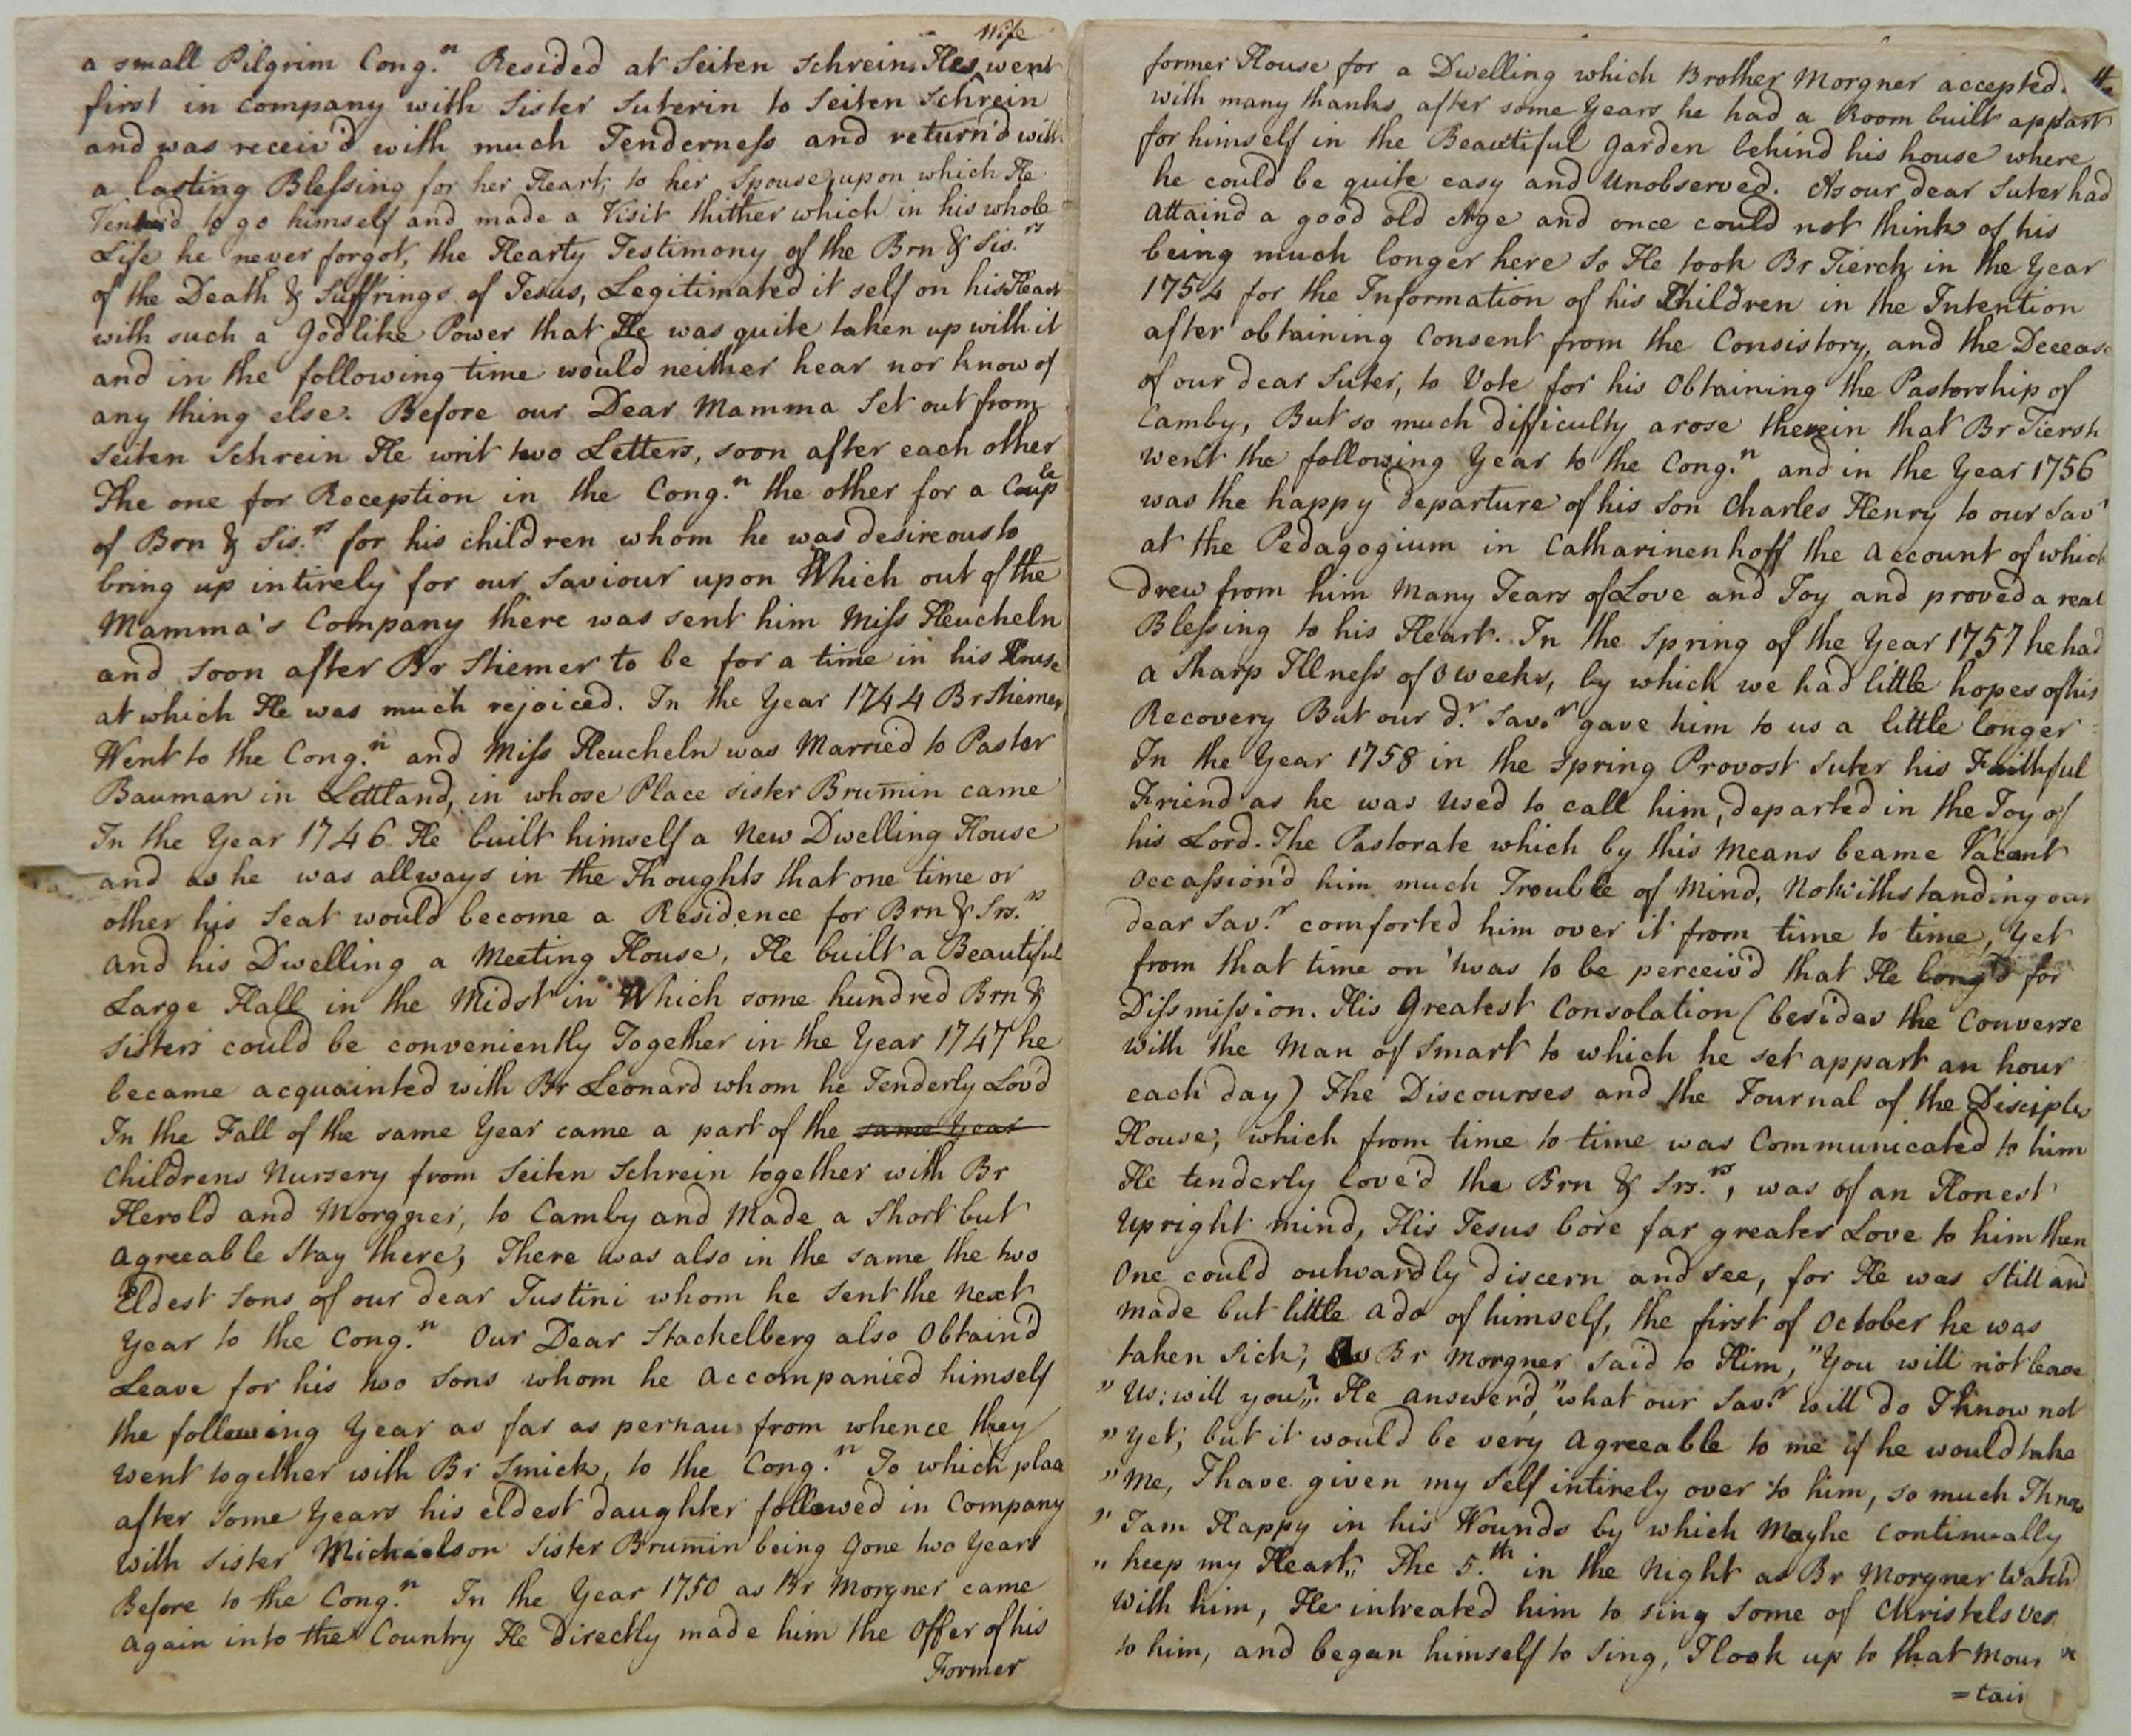 Wife
a small Pilgrim Cong.n Resided at Seiten Schrein. Hes went
first in company with Sister Suterin to Seiten Schrein
and was receiv'd with much Tenderness and return'd with
a lasting Blessing for her Heart, to her Spouse, upon which He
Ventur'd to go himself and made a Visit thither which in his whole
Life he never forgot, the Hearty Testimony of the Brn & Sis.rs
of the Death & Suffrings of Jesus, Legitimated it self on his Heart
with such a Godlike Power that He was quite taken up with it
and in the following time would neither hear nor know of
any thing else. Before our Dear Mamma Set out from
Seiten Schrein He writ two Letters, soon after each other
The one for Reception in the Cong.n the other for a Couple
of Brn & Sis.rs for his children whom he was desireous to
bring up intirely for our Saviour upon Which out of the
Mamma's Company there was sent him Miss Heucheln
and soon after Br Stiemer to be for a time in his House
at which He was much rejoiced. In the Year 1744 Br Stiemer
Went to the Cong.n and Miss Heucheln was Married to Pastor
Bauman in Lettland, in whose Place sister Brum̄in came
In the Year 1746 He built himself a New Dwelling House
and as he was allways in the Thoughts that one time or
other his Seat would become a Residence for Brn & Srs.rs
and his Dwelling a Meeting House, He built a Beautiful
Large Hall in the Midst in Which some hundred Brn &
Sisters could be conveniently Together in the Year 1747 he
became acquainted with Br Leonard whom he Tenderly Lov'd
In the Fall of the same Year came a part of the same Year
Childrens Nursery from Seiten Schrein together with Br
Herold and Morgner, to Camby and Made a Short but
Agreeable Stay there, There was also in the same the two
Eldest Sons of our dear Justini whom he sent the Next
Year to the Cong.n Our Dear Stackelberg also Obtain'd
Leave for his two Sons whom he Accompanied himself
the following Year as far as pernau from whence they
went together with Br Smick, to the Cong.n To which place
after some Years his eldest daughter followed in Company
with sister Michaelson Sister Brum̄in being Gone two Years
Before to the Cong.n In the Year 1750 as Br Morgner came
again into the Country He Directly made him the Offer of his
Former
former House for a Dwelling which Brother Morgner accepted
with many thanks after some Years he had a Room built appart
for himself in the Beautiful Garden behind his house where
he could be quite easy and Unobserved. As our dear Suter had
Attaind a good old Age and once could not think of his
being much longer here So He took Br Tierch in the Year
1754 for the Information of his Children in the Intention
after obtaining Consent from the Consistory, and the Decease
of our dear Suter, to Vote for his Obtaining the Pastorship of
Camby, But so much difficulty arose therein that Br Tiersh
went the following Year to the Cong.n and in the Year 1756
was the happy departure of his Son Charles Henry to our Savr
at the Pedagogium in Catharinenhoff the Account of which
drew from him Many Tears of Love and Joy and proved a real
Blessing to his Heart. In the Spring of the Year 1757 he had
a Sharp Illness of 8 weeks, by which we had little hopes of his
Recovery But our d.r Sav.r gave him to us a little longer
In the Year 1758 in the Spring Provost Suter his Faithful
Friend as he was Used to call him, departed in the Joy of
his Lord. The Pastorate which by this Means beame Vacant
Occassion'd him much Trouble of Mind, Nokwithstanding our
dear Sav.r comforted him over it from time to time, Yet
from that time on 'twas to be perceiv'd that He long'd for
Dissmission. His Greatest Consolation (besides the Converse
with the Man of Smart to which he set appart an hour
each day) The Discourses and the Journal of the Disciples
House, which from time to time was Communicated to him
He tenderly love'd the Brn & Srs.rs, was of an Honest
Upright mind, His Jesus bore far greater Love to him then
One could outwardly discern and see, for He was Still and
made but little ado of himself, the first of October he was
taken sick, As Br Morgner said to Him, "You will not leave
" Us: will you„? He answer'd, "what our Sav.r will do I know not
" Yet; but it would be very Agreeable to me if he would take
" Me, I have given my Self intirely over to him, so much I know
" I am Happy in his Wounds by which May he continually
" keep my Heart„ The 5.th in the Night as Br Morgner Watch'd
With him, He intreated him to sing Some of Christels Ves.
to him, and began himself to Sing, I look up to that Moun
=tain